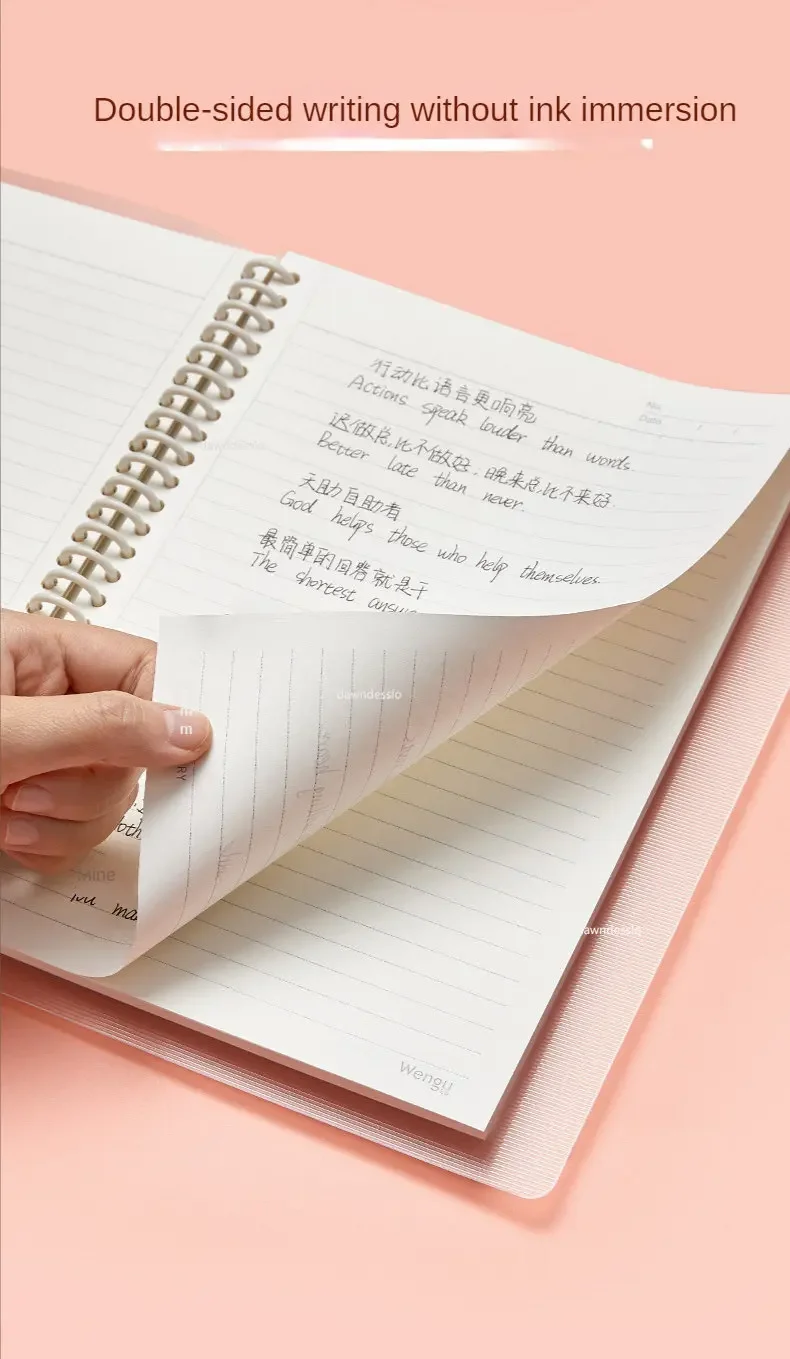 Double-sided writing without ink immersion
No.
Date
行动比语言更响亮
Actions speak louder than words.
迟做总比不做好,晚来总比不来好
Better late than never.
天助自助者
God helps those who help themselves.
最简单的回答就是干
The shortest
dawndesslo
m
RY
Mine
dawndesslo
Wengu